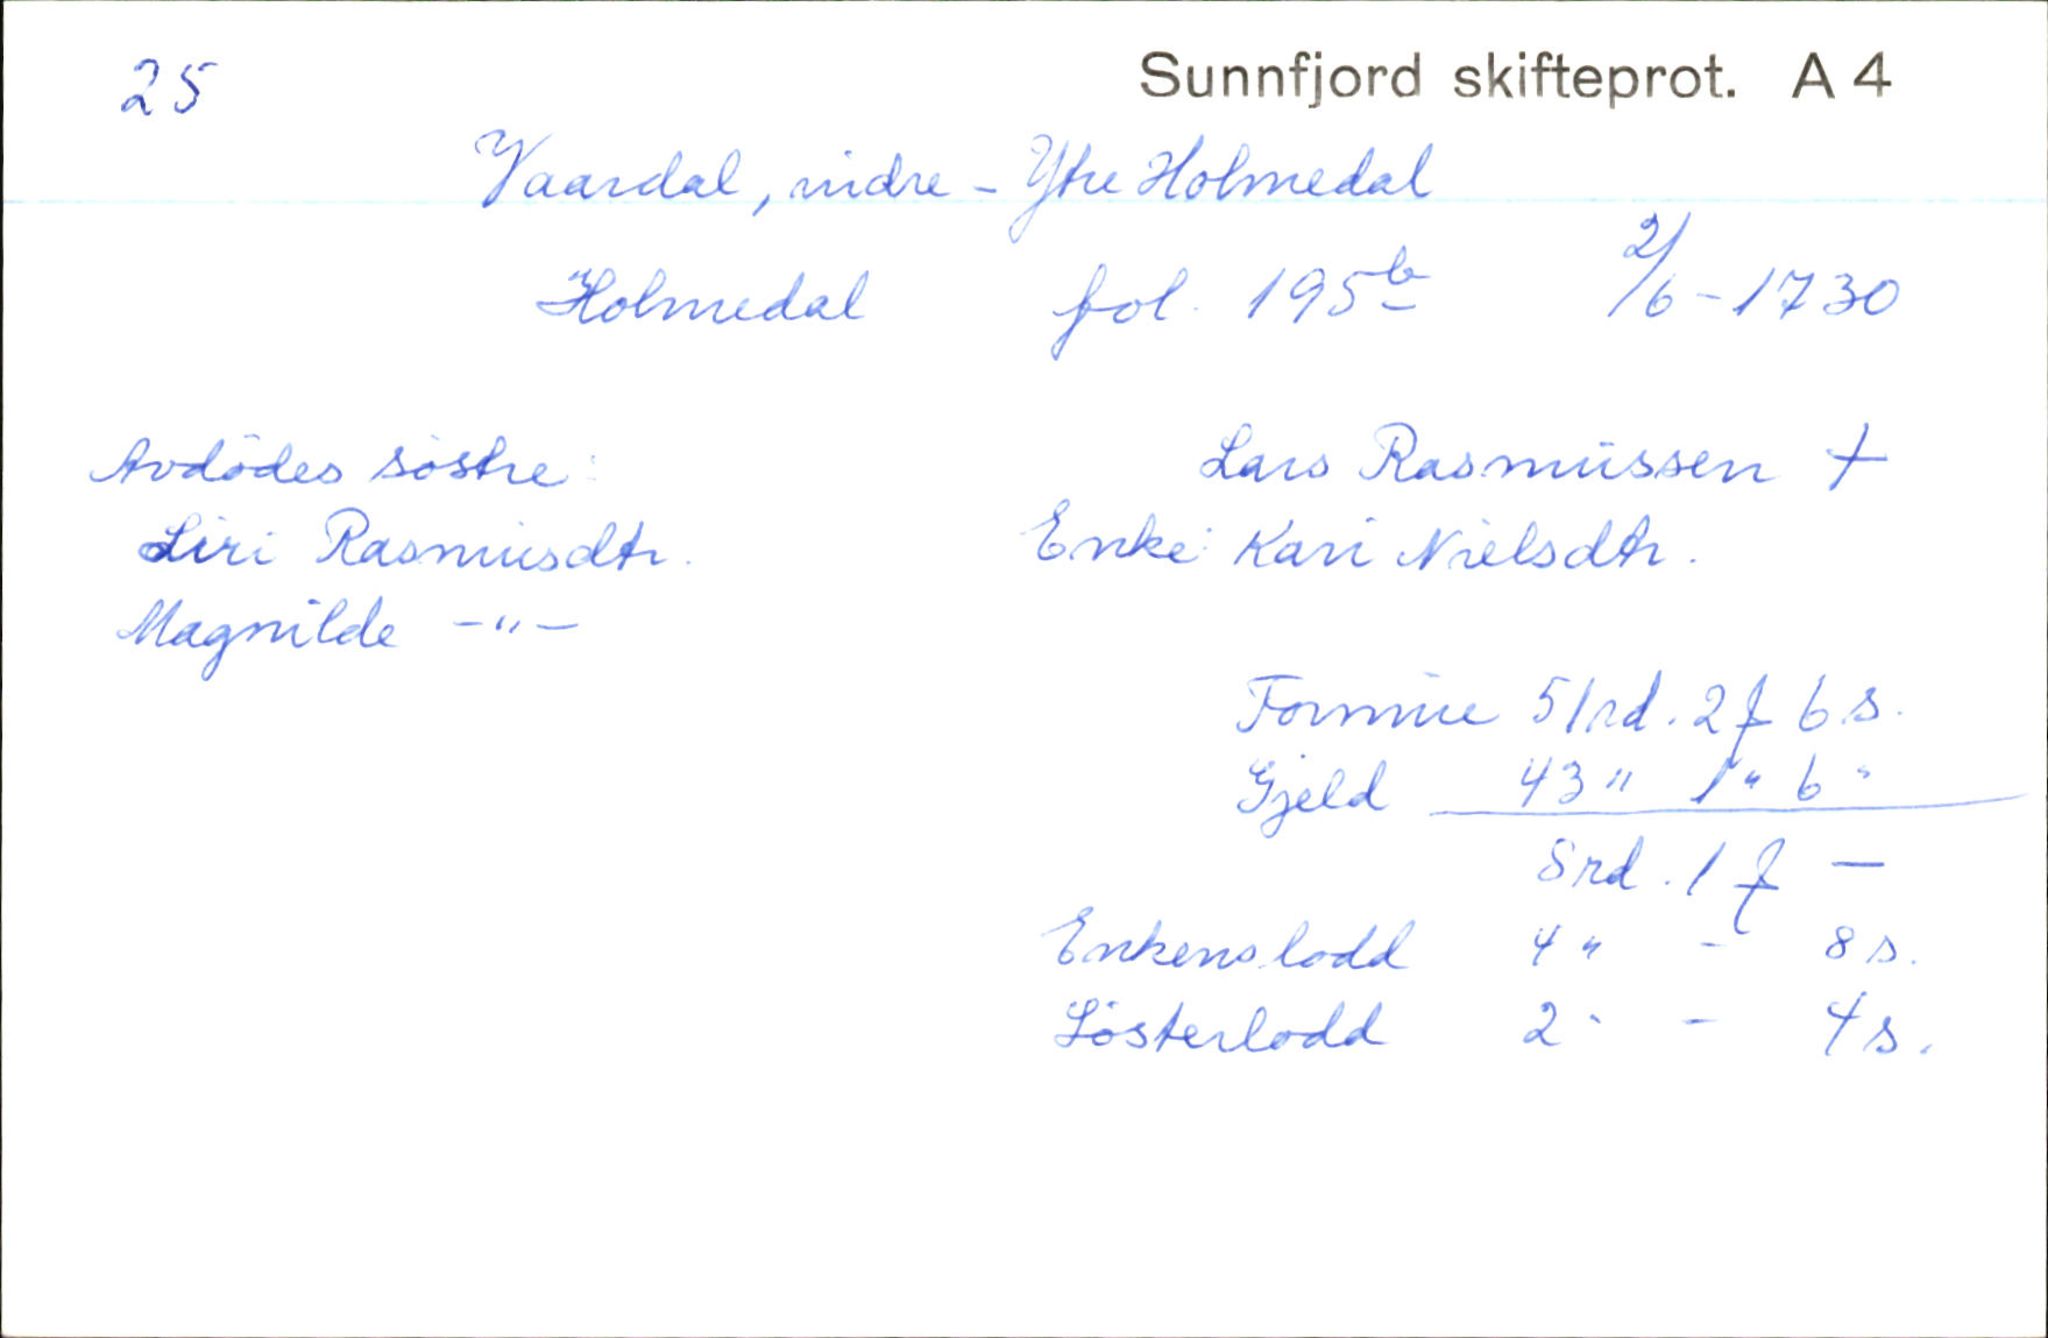 25 Sunnfjord skifteprot. A 4
Vaardal, indre - Ytre Holmedal
Holmedal fol. 195b 2/6-1730
Avdødes søstre: Lars Rasmussen +
Siri Rasmusdtr. Enke: Kari Nielsdtr.
Magnilde -"-
Formue 51rd. 2f 6 s.
Gjeld 43 " 1 " 6 "
8rd. 1 f -
Enkens lodd 4 " - 8 s.
Søsterlodd 2 " - 4 s.